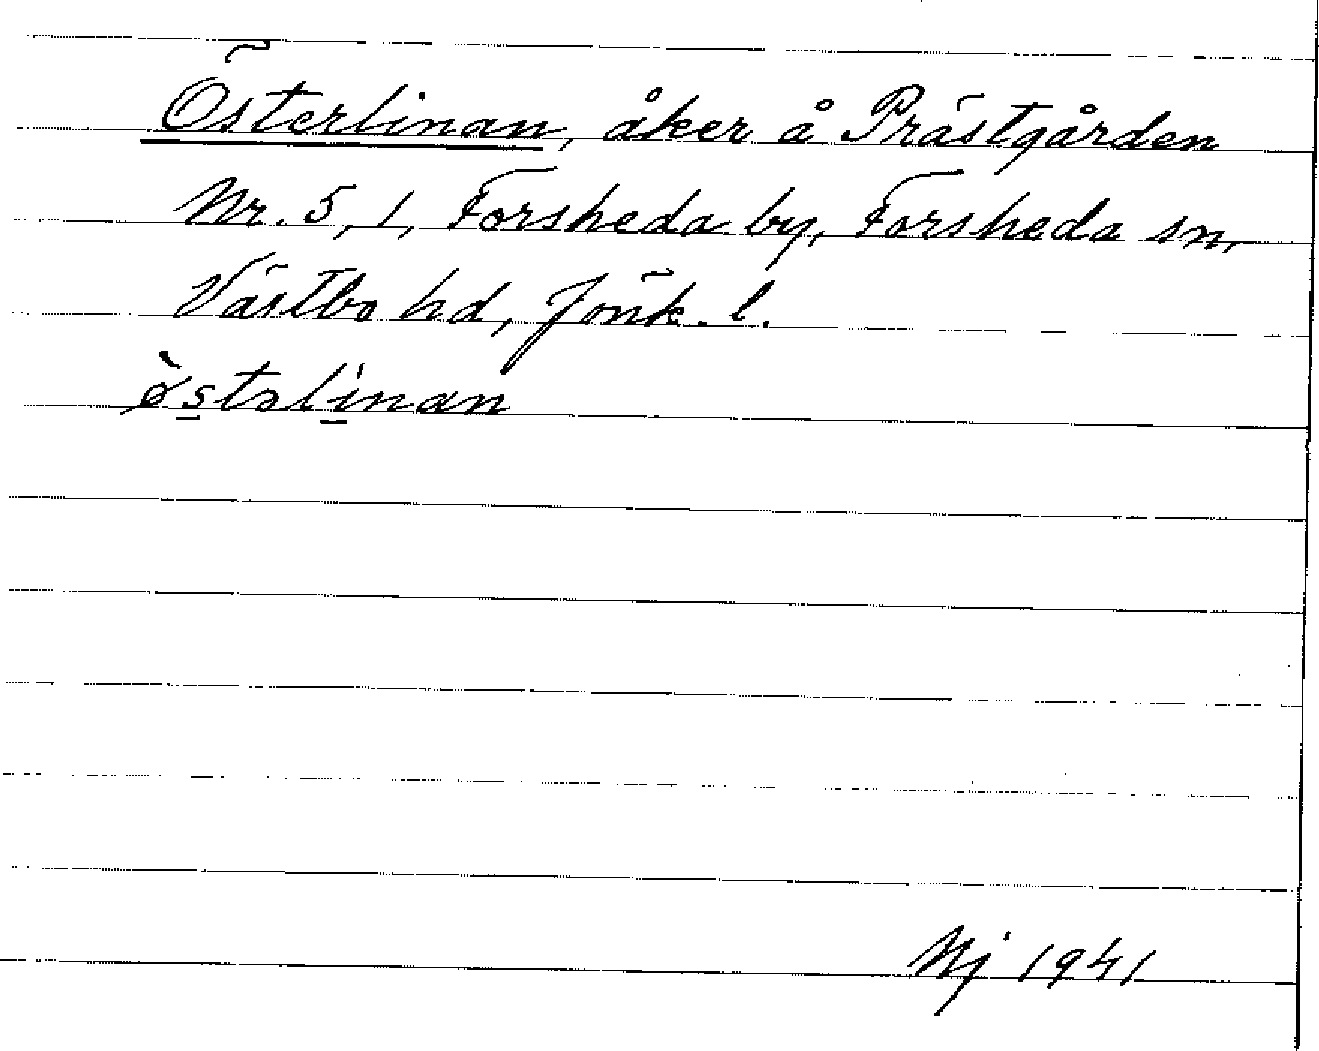 Österlinan, åker å Prästgården
Nr. 5, 1, Forsheda by, Forsheda sn,
Västbo hd, Jönk. l.
òstslinan
Nj 1941